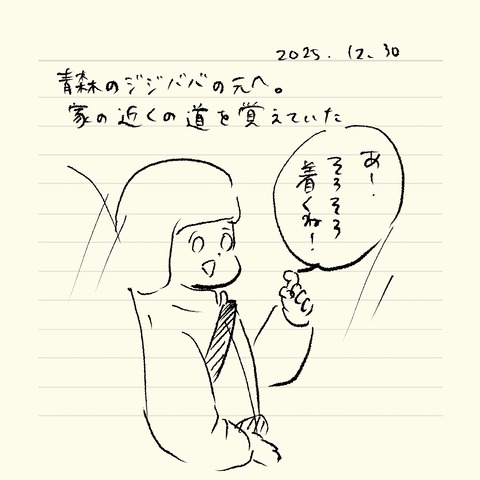 2025.12.30
青森のジジババの元へ。
家の近くの道を覚えていた
あ！
そろそろ
着くね！